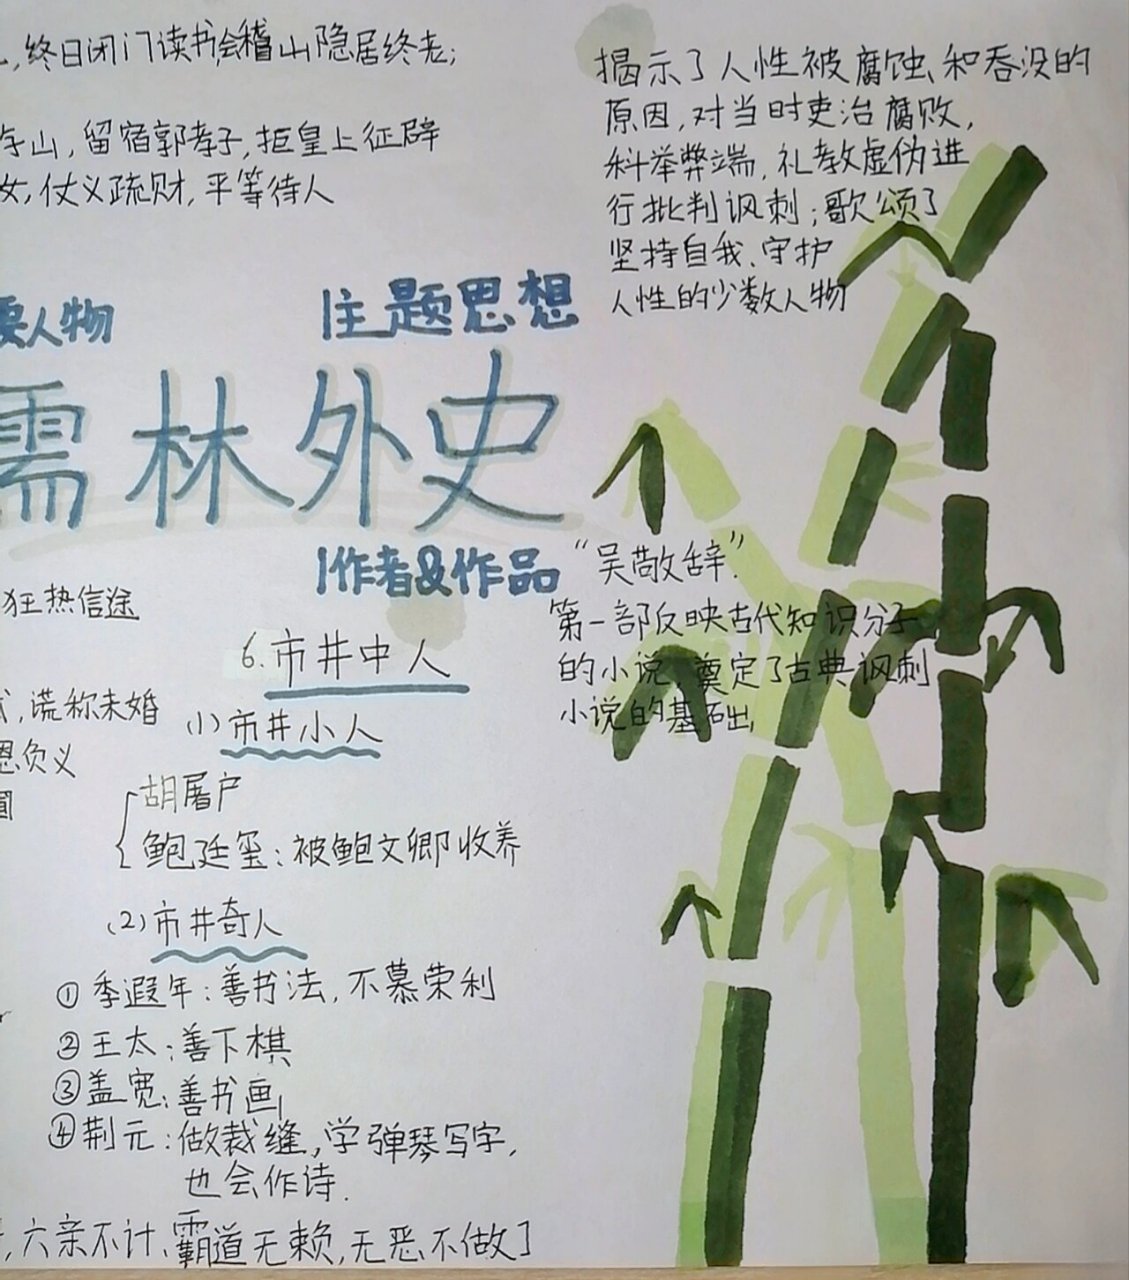 ,终日闭门读书,会稽山隐居终老;
山,留宿郭孝子,拒皇上征辟
女,仗义疏财,平等待人
揭示了人性被腐蚀、和吞没的
原因,对当时吏治腐败,
科举弊端,礼教虚伪进
行批判讽刺;歌颂了
坚持自我、守护
人性的少数人物
要人物
主题思想
儒林外史
作者&作品
"吴敬辞".
第一部反映古代知识分子
的小说,奠定了古典讽刺
小说的基础,
狂热信途
6.市井中人
,谎称未婚
恩负义
(1)市井小人
胡屠户
鲍廷玺:被鲍文卿收养
(2)市井奇人
①季遐年:善书法,不慕荣利
②王太:善下棋
③盖宽:善书画,
④荆元:做裁缝,学弹琴写字,
也会作诗.
,六亲不计、霸道无赖,无恶不做]